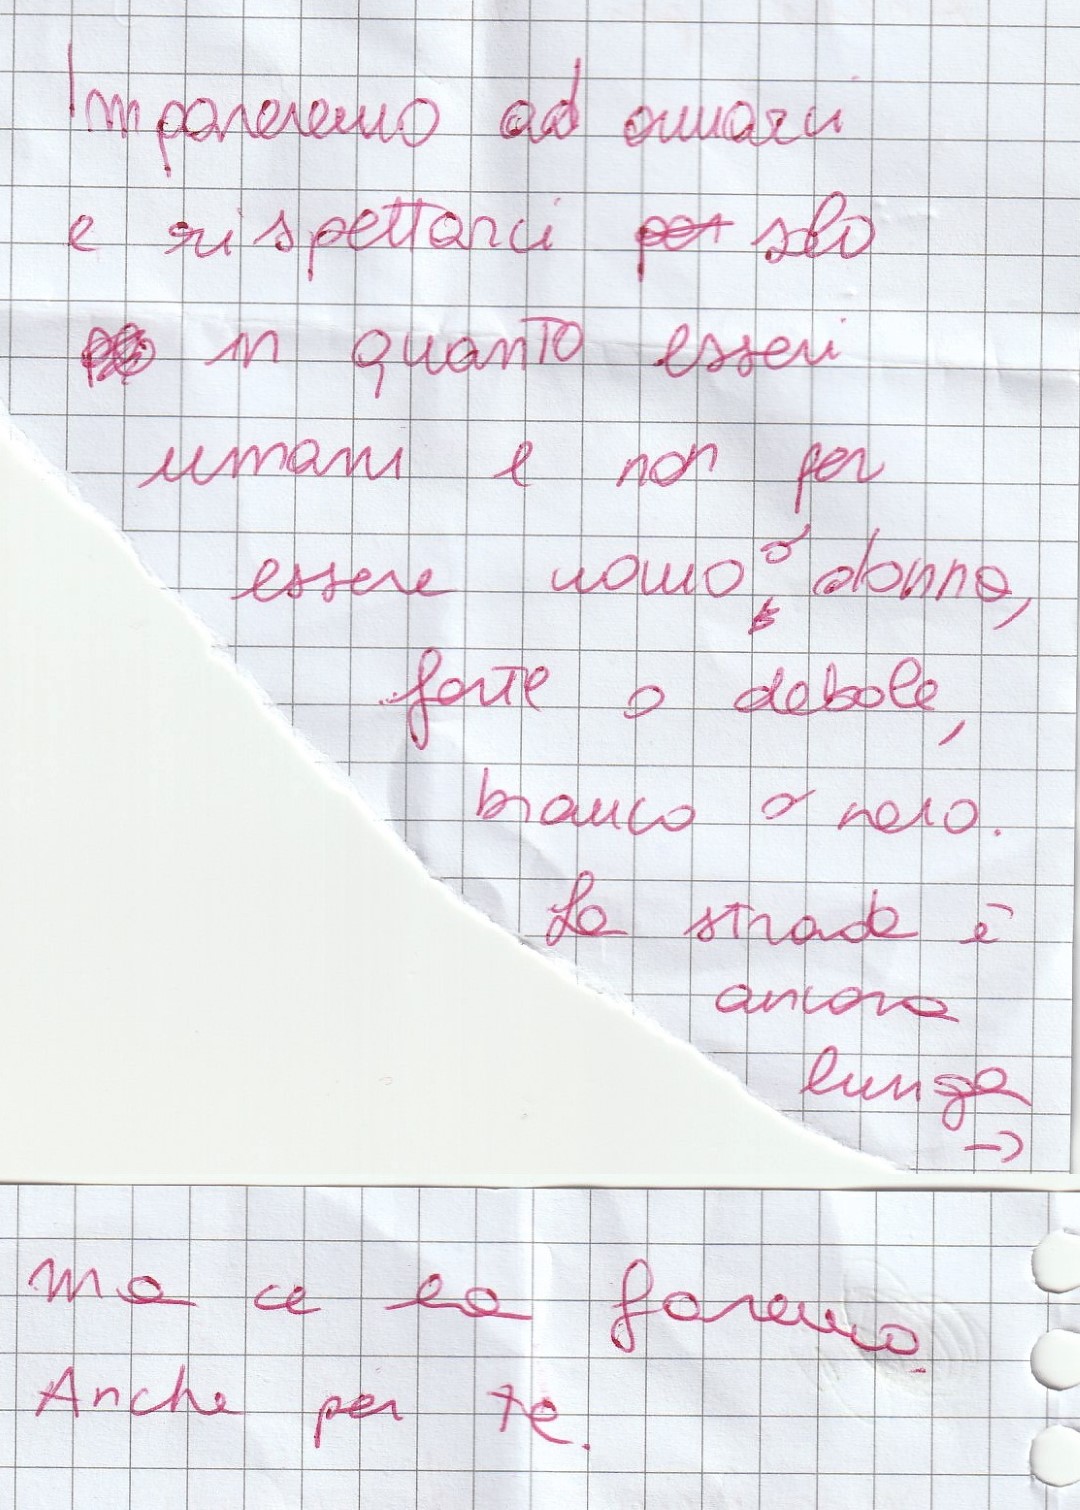 Impareremo ad amarci
e rispettarci per solo
in quanto esseri
umani e non per
essere uomo o donna,
forte o debole,
bianco o nero.
La strada è
ancora
lunga
→
Ma ce la faremo.
Anche per te.